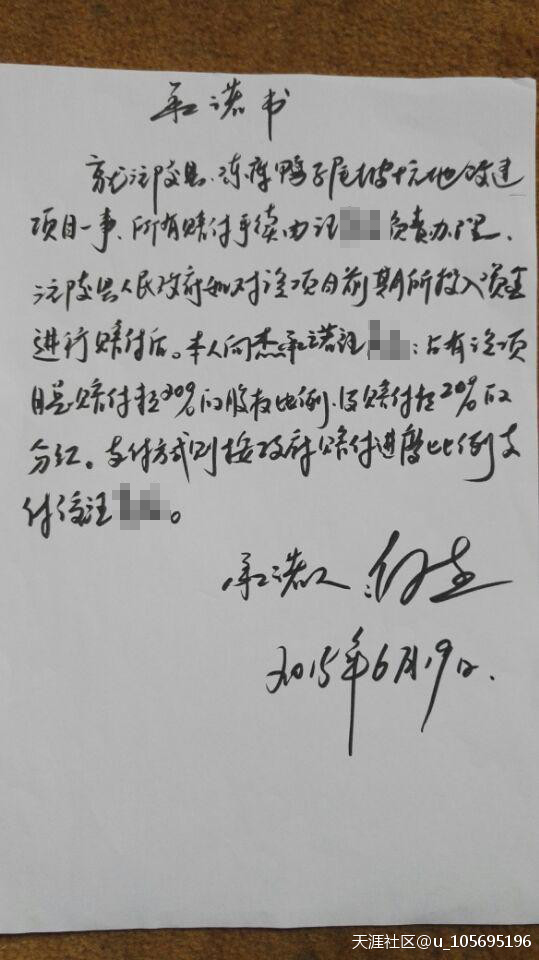 承诺书
就沅陵县凉水井鸭子尾棚户地改建
项目一事、所有赔付手续由汪 负责办理、
沅陵县人民政府如对该项目前期所投入资金
进行赔付后。本人向杰承诺汪 :占有该项
目总赔付款20%的股权比例、及赔付款20%的
分红。支付方式则按政府赔付进度比例支
付给汪 。
承诺人:向杰
2015年6月19日.
天涯社区@u_105695196